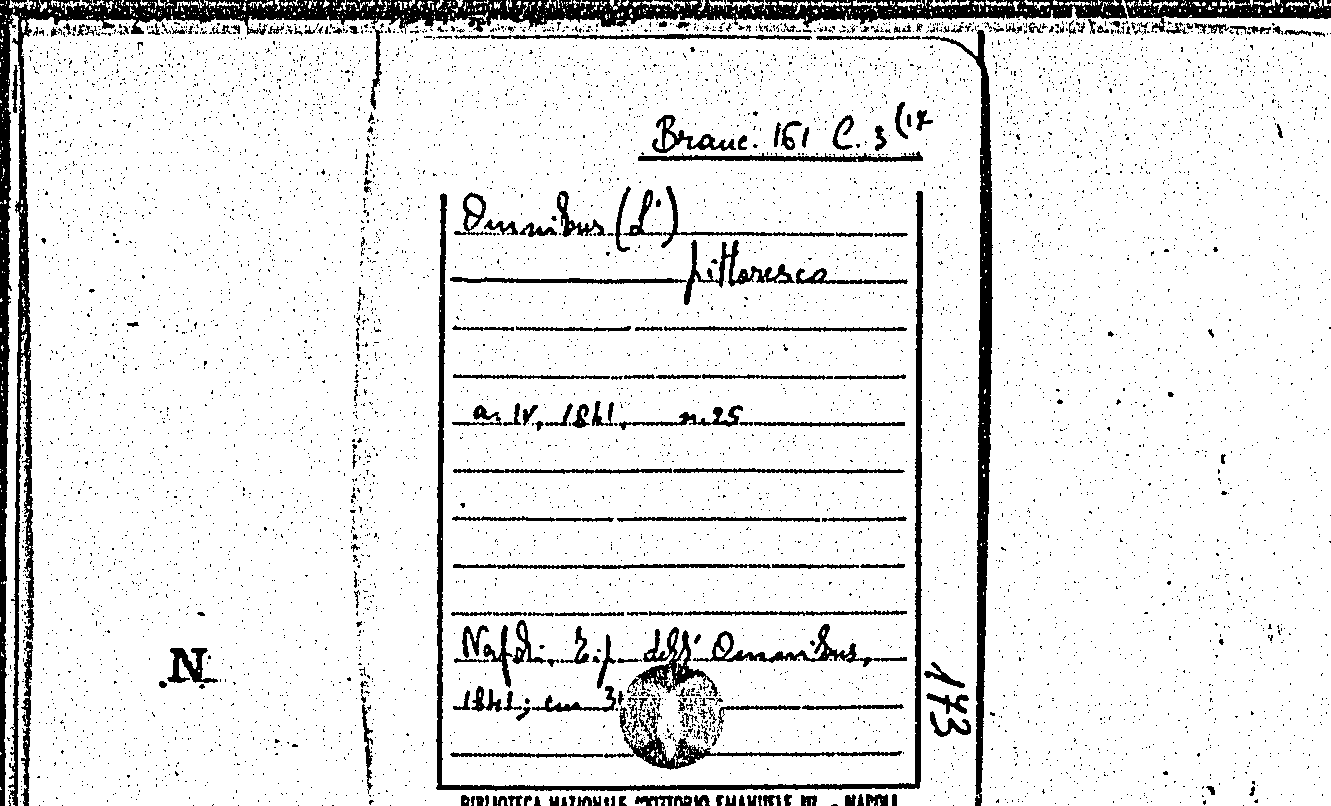 Branc. 161 C. 3 (17
Omnibus (L')
pittoresco
a. IV, 1841, n. 25
Napoli, Tip. dell'Omnibus,
1841; cm 3
173
N
BIBLIOTECA NAZIONALE "VITTORIO EMANUELE III" - NAPOLI